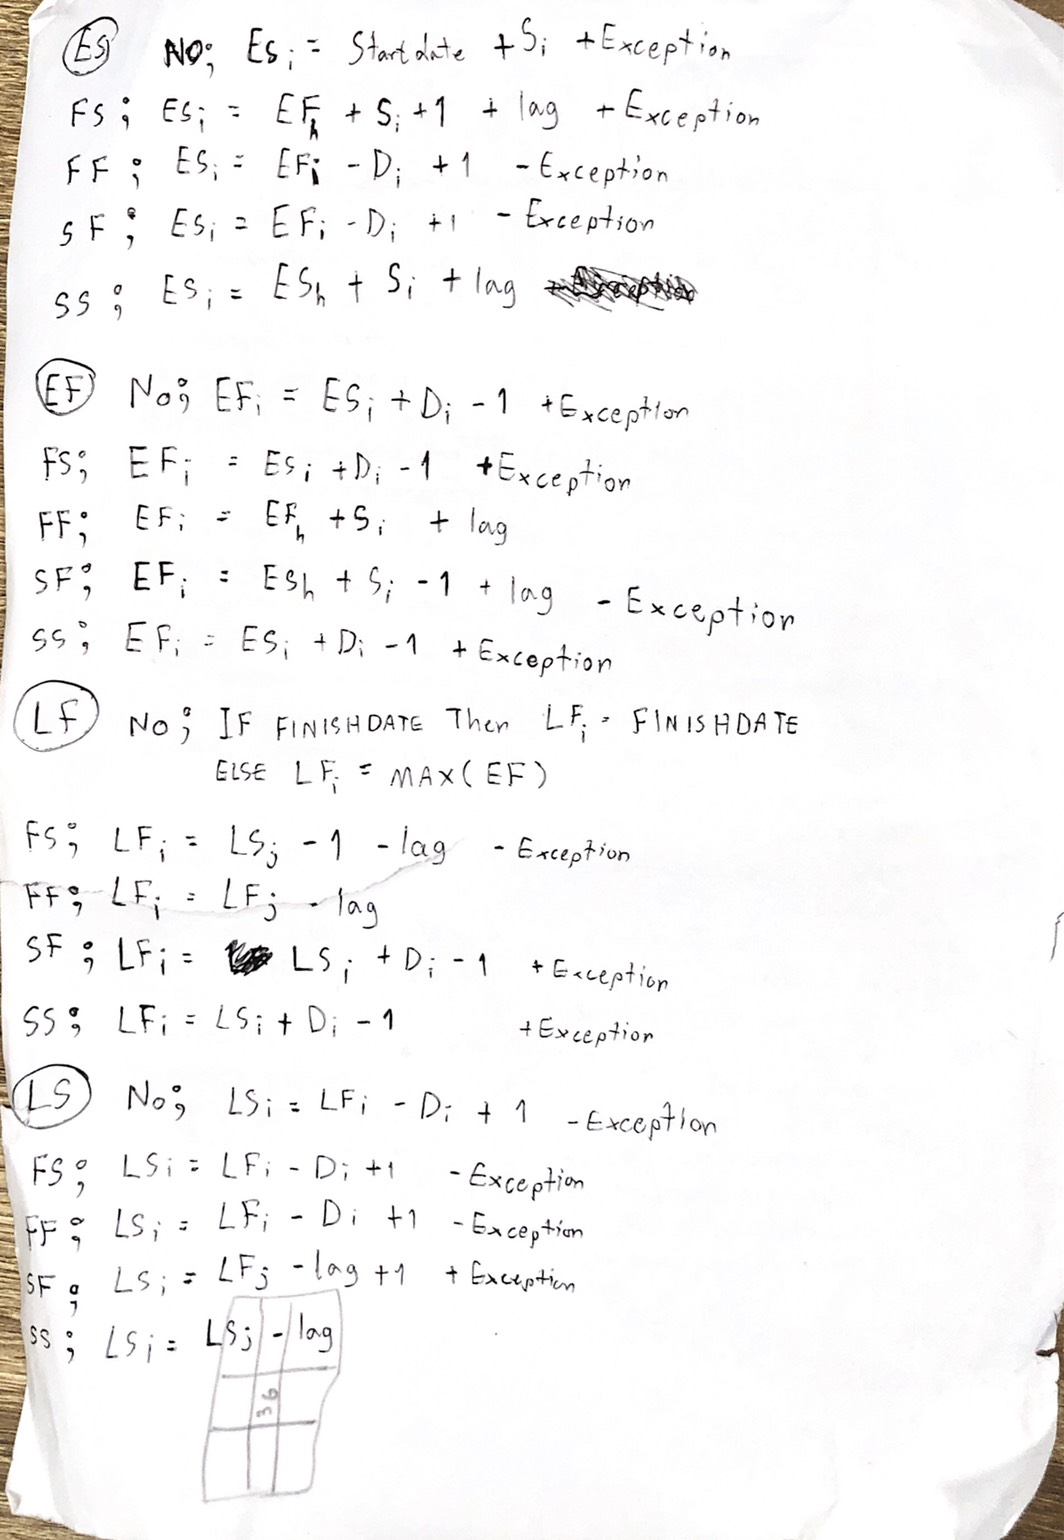 ES NO; ESi = Start date + Si + Exception
FS; ESi = EFh + Si + 1 + lag + Exception
FF; ESi = EFi - Di + 1 - Exception
SF; ESi = EFi - Di + 1 - Exception
SS; ESi = ESh + Si + lag
EF No; EFi = ESi + Di - 1 + Exception
FS; EFi = ESi + Di - 1 + Exception
FF; EFi = EFh + Si + lag
SF; EFi = ESh + Si - 1 + lag - Exception
SS; EFi = ESi + Di - 1 + Exception
LF NO; IF FINISHDATE Then LFi = FINISHDATE
ELSE LFi = MAX(EF)
FS; LFi = LSj - 1 - lag - Exception
FF; LFi = LFj - lag
SF; LFi = LSi + Di - 1 + Exception
SS; LFi = LSi + Di - 1 + Exception
LS No; LSi = LFi - Di + 1 - Exception
FS; LSi = LFi - Di + 1 - Exception
FF; LSi = LFi - Di + 1 - Exception
SF; LSi = LFj - lag + 1 + Exception
SS; LSi = LSj - lag
36